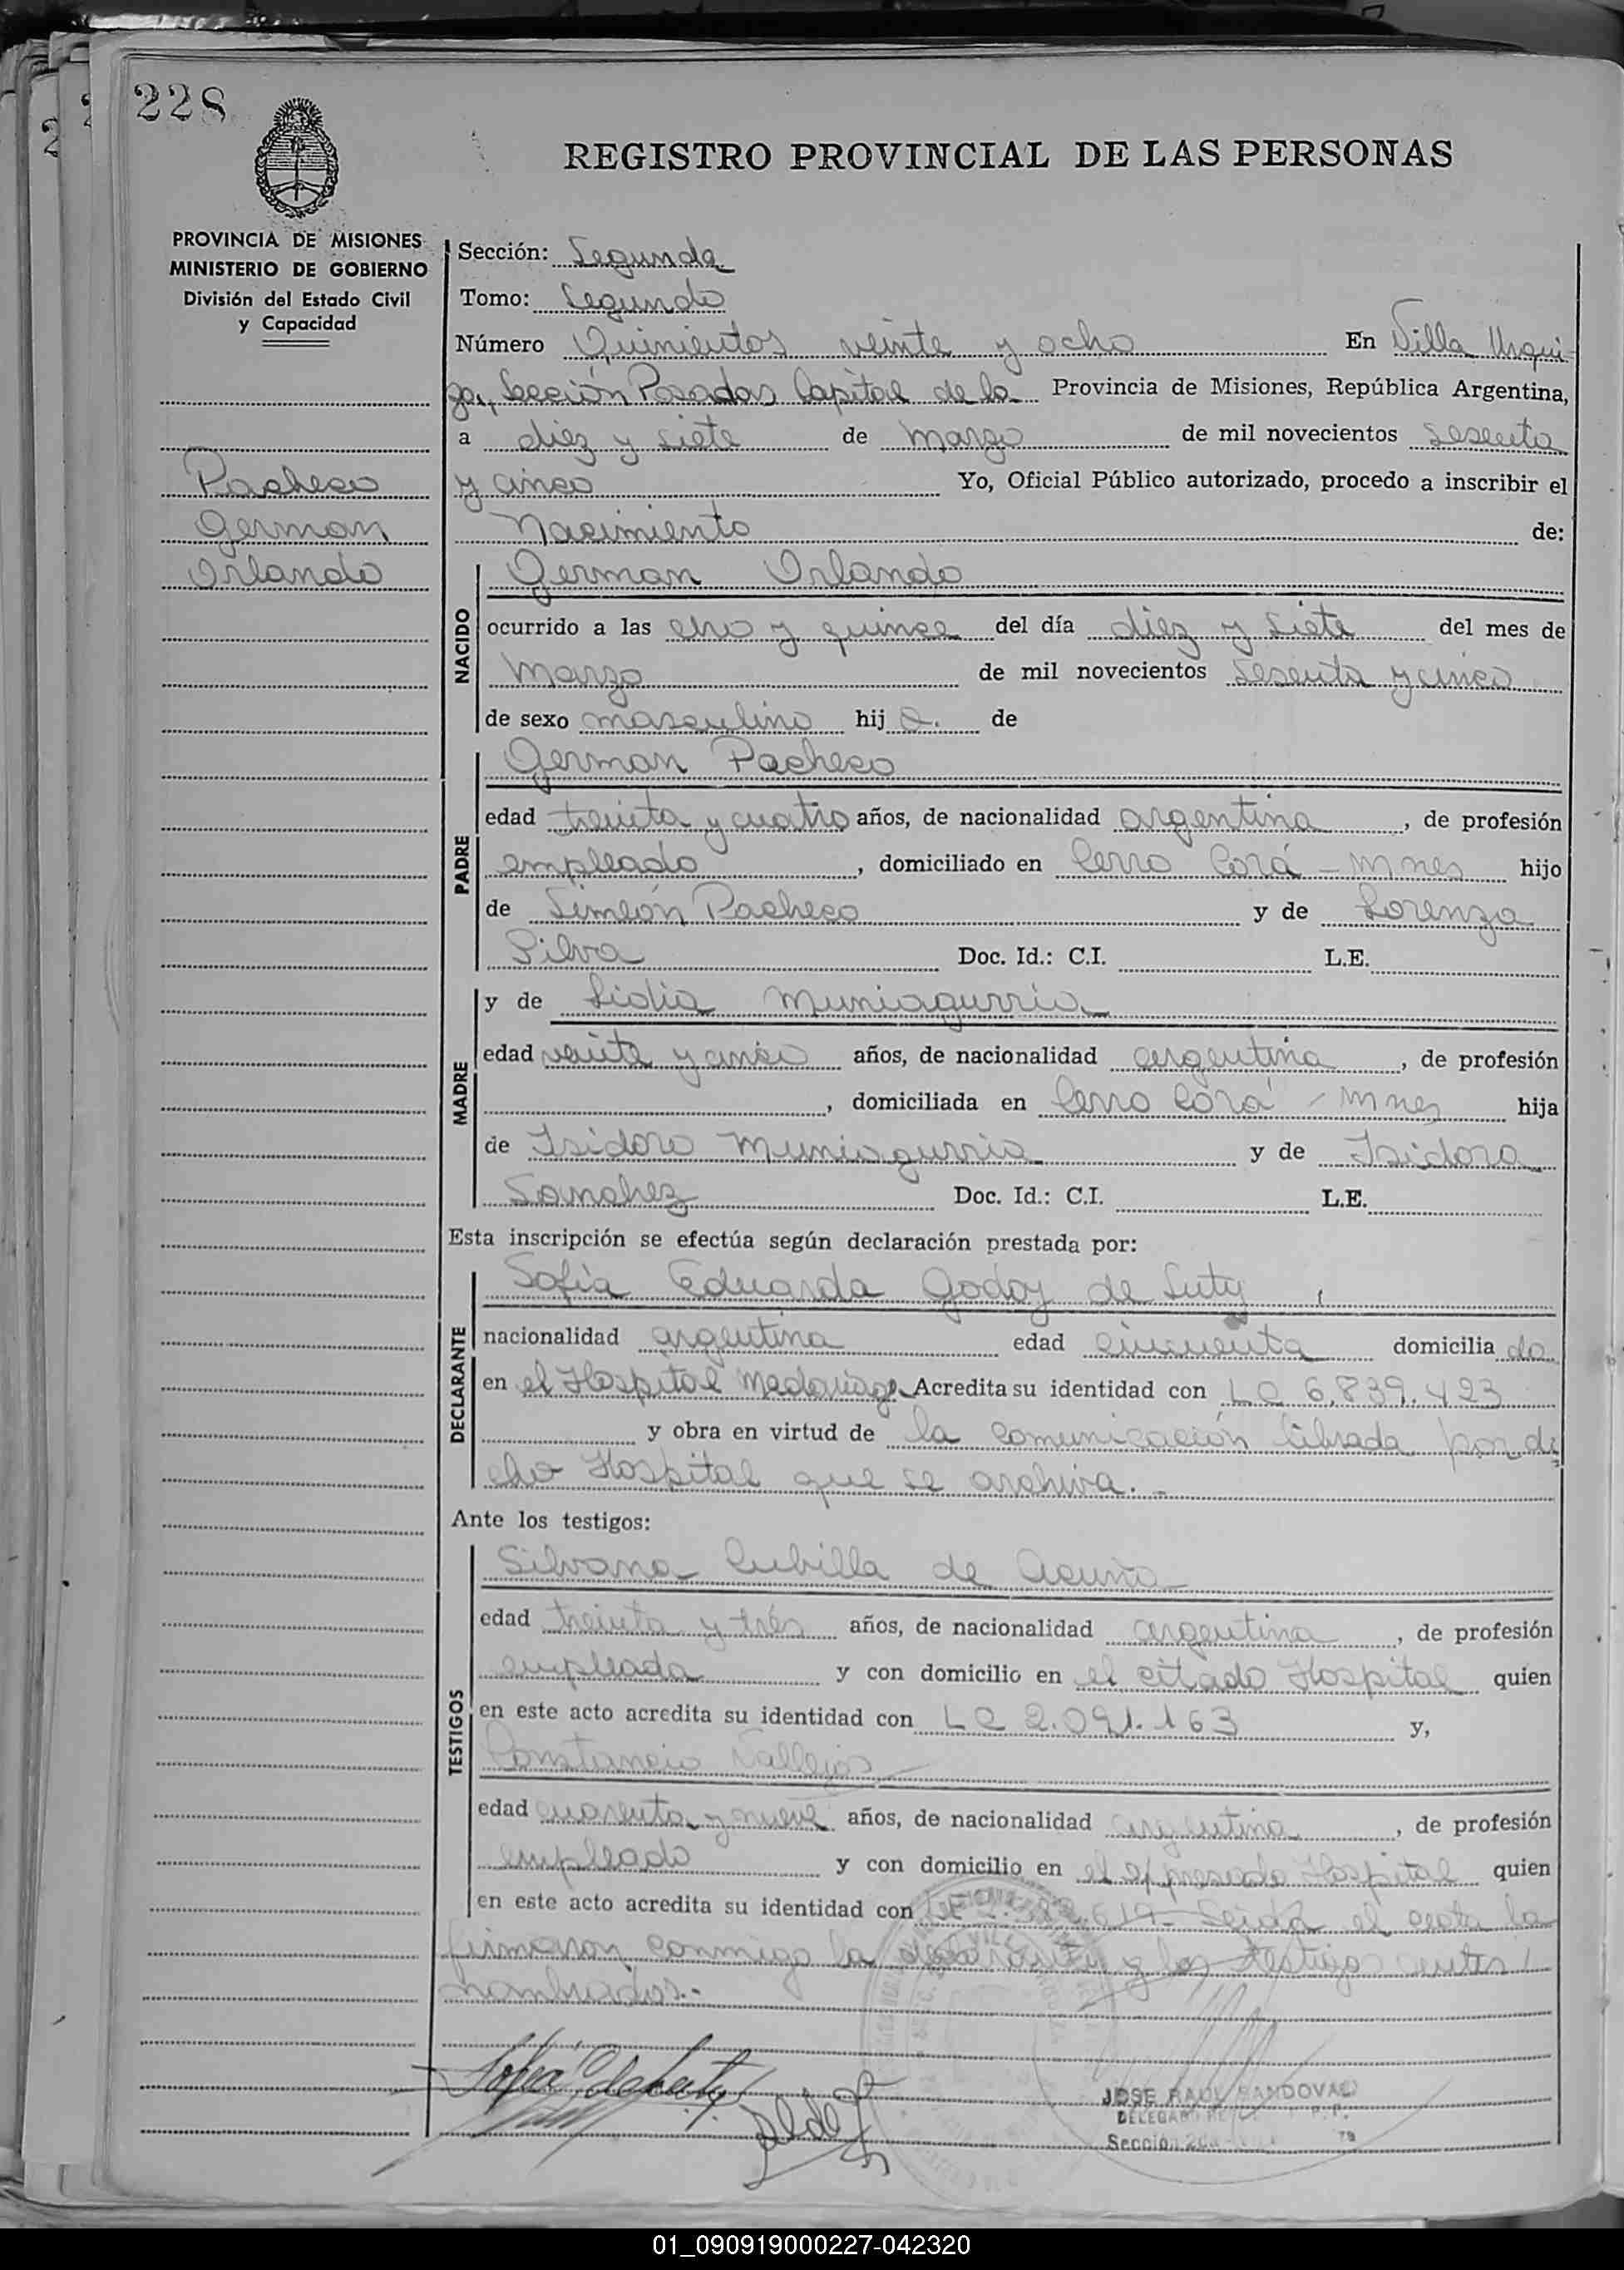 228
REGISTRO PROVINCIAL DE LAS PERSONAS
PROVINCIA DE MISIONES
MINISTERIO DE GOBIERNO
División del Estado Civil
y Capacidad
Pacheco
German
Orlando
Sección: Segunda
Tomo: Segundo
Número Quinientos veinte y ocho En Villa Urqui-
za, Sección Posadas Capital de la Provincia de Misiones, República Argentina,
a diez y siete de marzo de mil novecientos sesenta
y cinco Yo, Oficial Público autorizado, procedo a inscribir el
Nacimiento de:
NACIDO
German Orlando
ocurrido a las y quince del día diez y siete del mes de
marzo de mil novecientos sesenta y cinco
de sexo masculino hij o. de
German Pacheco
PADRE
edad treinta y cuatro años, de nacionalidad argentina, de profesión
empleado, domiciliado en Cerro Corá - Mnes hijo
de Simeón Pacheco y de Lorenza
Silva Doc. Id.: C.I. L.E.
MADRE
y de Lidia Muniagurria
edad veinte y cinco años, de nacionalidad argentina, de profesión
, domiciliada en Cerro Corá - Mnes hija
de Isidoro Muniagurria y de Isidora
Sanchez Doc. Id.: C.I. L.E.
Esta inscripción se efectúa según declaración prestada por:
DECLARANTE
Sofia Eduarda Godoy de Luty
nacionalidad argentina edad cincuenta domicilia da
en el Hospital Madariaga Acredita su identidad con LC 6.839.423
y obra en virtud de la comunicación librada por di
cho Hospital que se archiva.-
Ante los testigos:
TESTIGOS
Silvana Cubilla de Acuña
edad treinta y trés años, de nacionalidad argentina, de profesión
empleada y con domicilio en el citado Hospital quien
en este acto acredita su identidad con LC 2.091.163 y,
Constancio Vallejos
edad cuarenta y nueve años, de nacionalidad argentina, de profesión
empleado y con domicilio en el expresado Hospital quien
en este acto acredita su identidad con .619- Leida el acta la
firmaron conmigo la declarante y los testigos antes
nombrados.-
JOSE RAUL SANDOVAL
DELEGADO
Sección 2da
01_090919000227-042320